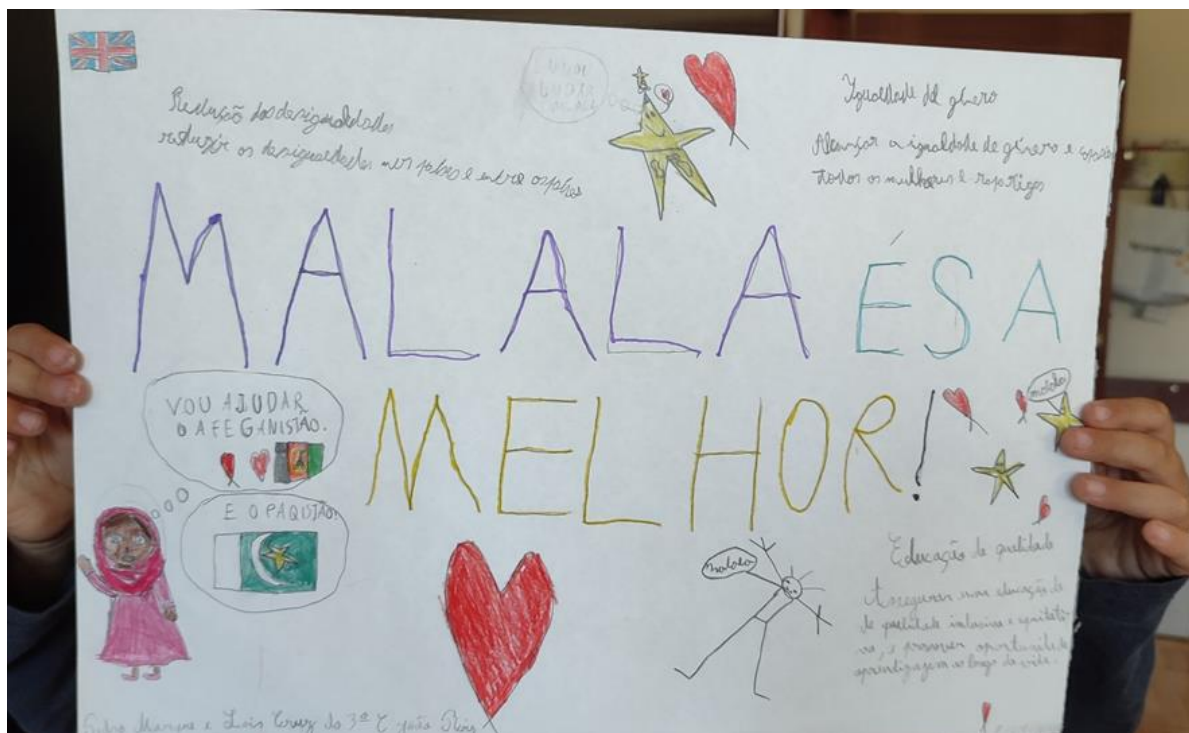 Redução das desigualdades
reduzir as desigualdades nos países e entre os países
Igualdade de género
Alcançar a igualdade de género e
todas as mulheres e raparigas
MALALA ÉS A
MELHOR!
VOU AJUDAR
O AFEGANISTÃO.
E O PAQUISTÃO!
malala
malala
Educação de qualidade
Assegurar uma educação de
de qualidade inclusiva e equitati
va, e promover oportunidade
aprendizagem ao longo da vida.
Pedro Marques e Luís Cruz do 3º C João